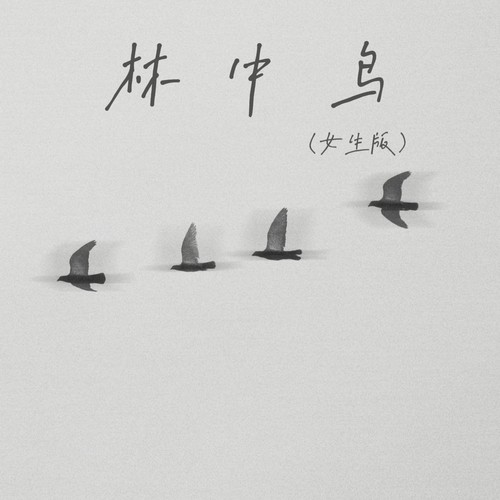 林中鸟
(女生版)